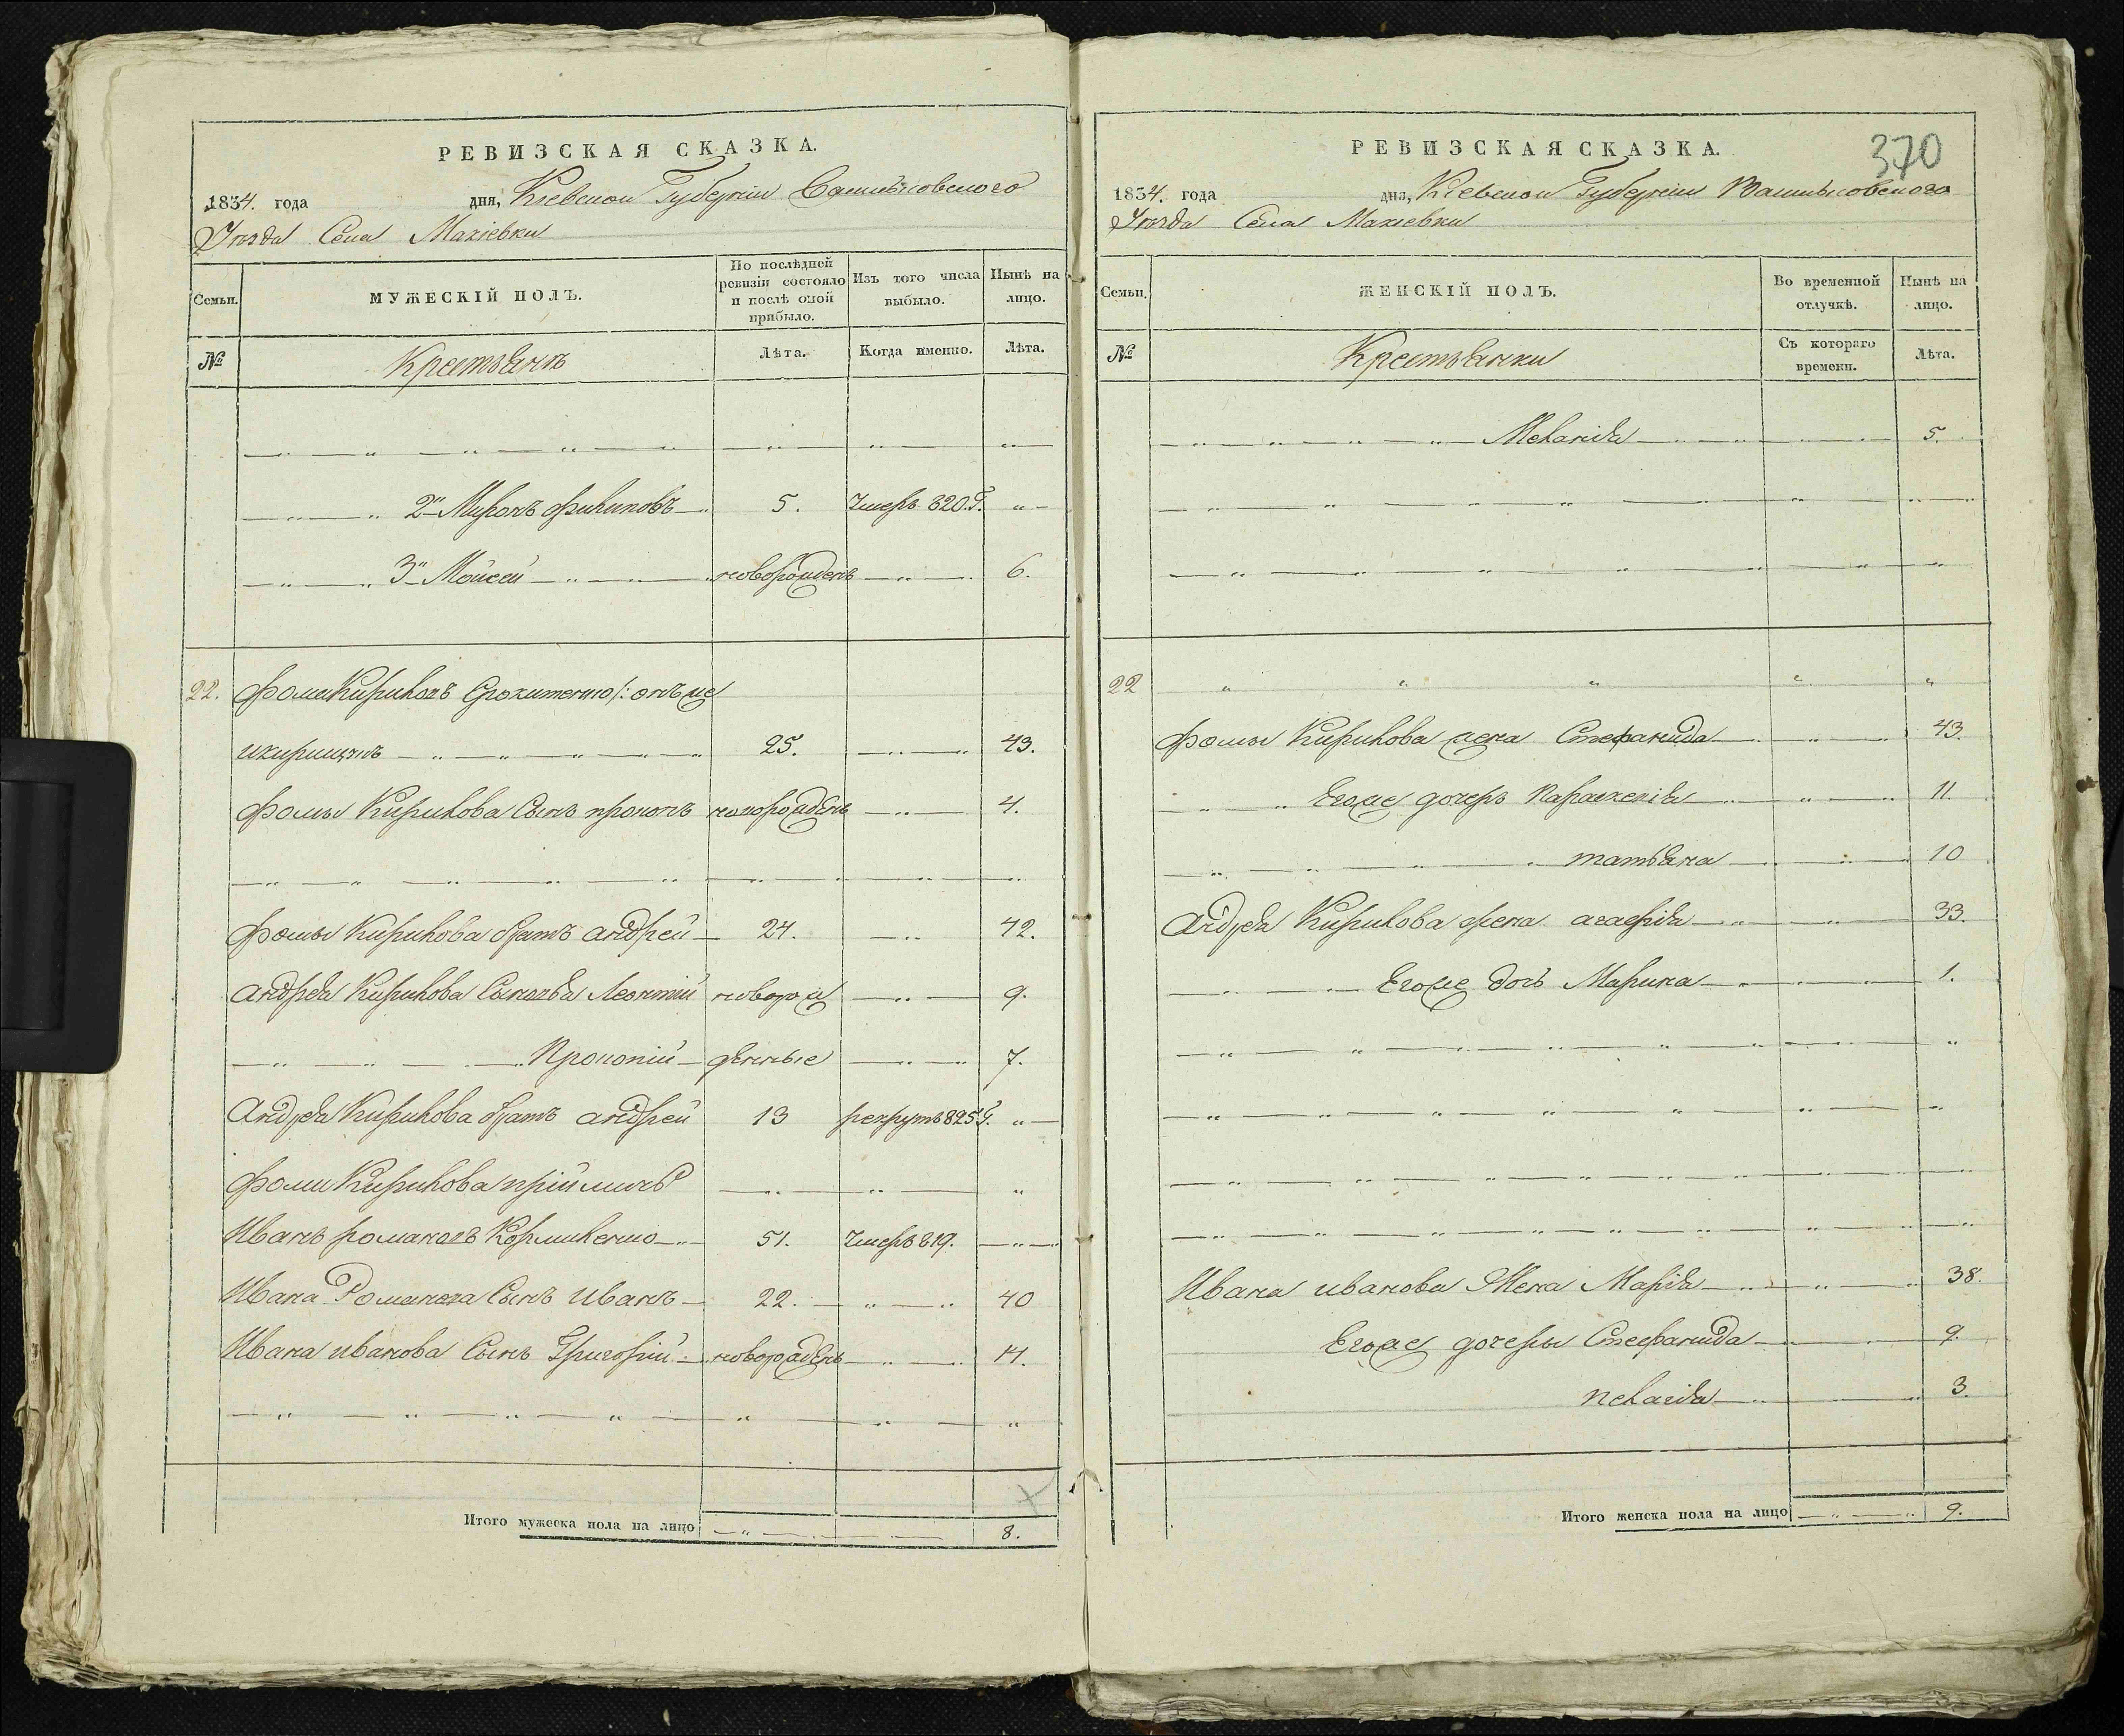 РЕВИЗСКАЯ СКАЗКА.
1834. года дня, Кіевской Губерніи Васильковского
Уѣзда Села Махіевки
Семьи.
МУЖЕСКІЙ ПОЛЪ.
По послѣдней ревизіи состояло и послѣ оной прибыло.
Изъ того числа выбыло.
Нынѣ на лицо.
№
Крестьянъ
Лѣта.
Когда именно.
Лѣта.
2й Миронъ Филиповъ 5. Умеръ 820. Г.
3й Мойсей новорожденъ 6.
22. Фома Кириловъ онъ же
25. 43.
Фомы Кирилова Сынъ прокопъ новорожденъ 4.
Фомы Кирилова братъ андрей 24. 42.
Андрея Кирилова Сыновья Леонтій новорож 9.
Прокопій денные 7.
Андрея Кирилова братъ андрей 13 рекрутъ 825 Г.
Фомы Кирилова пріймичъ
Иванъ романовъ Кормиленко 51. Умеръ 819.
Ивана Романова Сынъ Иванъ 22. 40
Ивана иванова Сынъ Григорій новорожденъ 14.
Итого мужеска пола на лицо 8.
370
РЕВИЗСКАЯ СКАЗКА.
1834. года дня, Кіевской Губерніи Васильковского
Уѣзда Села Махіевки
Семьи.
ЖЕНСКІЙ ПОЛЪ.
Во временной отлучкѣ.
Нынѣ на лицо.
№
Крестьянки
Съ котораго времени.
Лѣта.
Меланія 5.
22
Фомы Кирилова жена Стефанида 43.
Егоже дочеръ Параскевія 11.
татьяна 10
Андрея Кирилова жена агафія 33.
Егоже дочь Марина 1.
Ивана иванова Жена Марія 38.
Егоже дочеры Стефанида 9.
пелагія 3.
Итого женска пола на лицо 9.